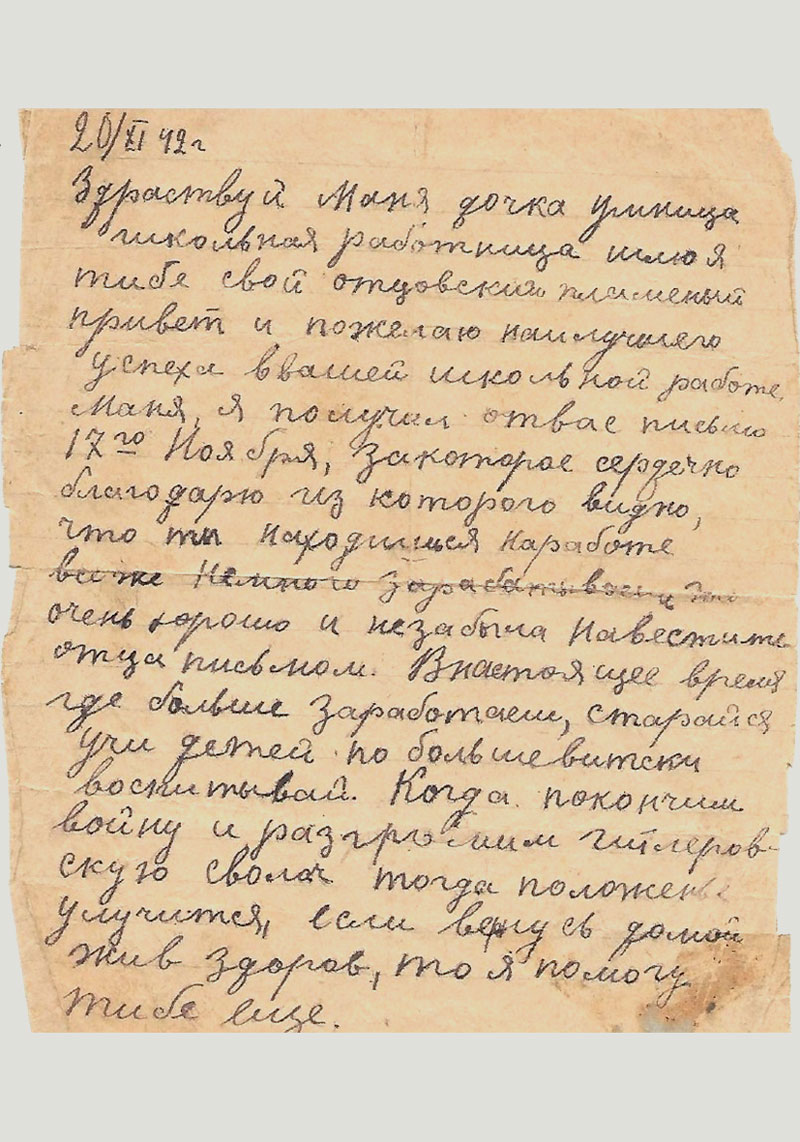 20/XI 42 г
Здраствуй Маня дочка умница
школьная работница шлю я
тибе свой отцовский пламеный
привет и пожелаю наилучшего
успеха ввашей школьной работе,
Маня, я получил отвас письмо
17го Ноября, закоторое сердечно
благодарю из которого видно,
что ты находишься наработе
всиже немного зарабатываешь
очень хорошо и незабыла навестить
отца письмом. Внастоящее время
где больше заработаеш, старайся
учи детей по большевитски
воспитывай. Когда покончим
войну и разгромим гитлеров-
скую сволоч тогда положенье
улучится, если вернусь домой
жив здоров, то я помогу
тибе еще.